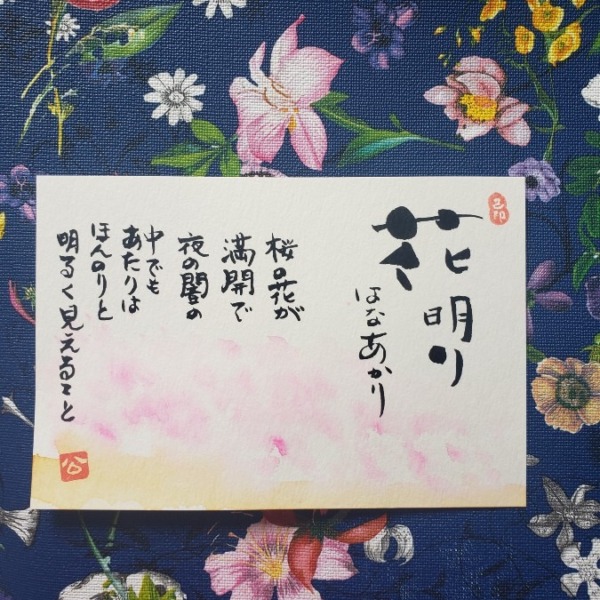 花明り
はなあかり
桜の花が
満開で
夜の闇の
中でも
あたりは
ほんのりと
明るく見えること
公